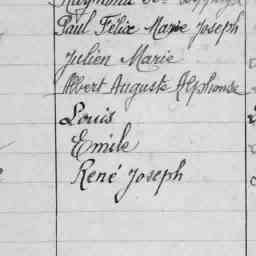 Raymond
Paul Félix Marie Joseph
Julien Marie
Albert Auguste Alphonse
Louis
Emile
René Joseph